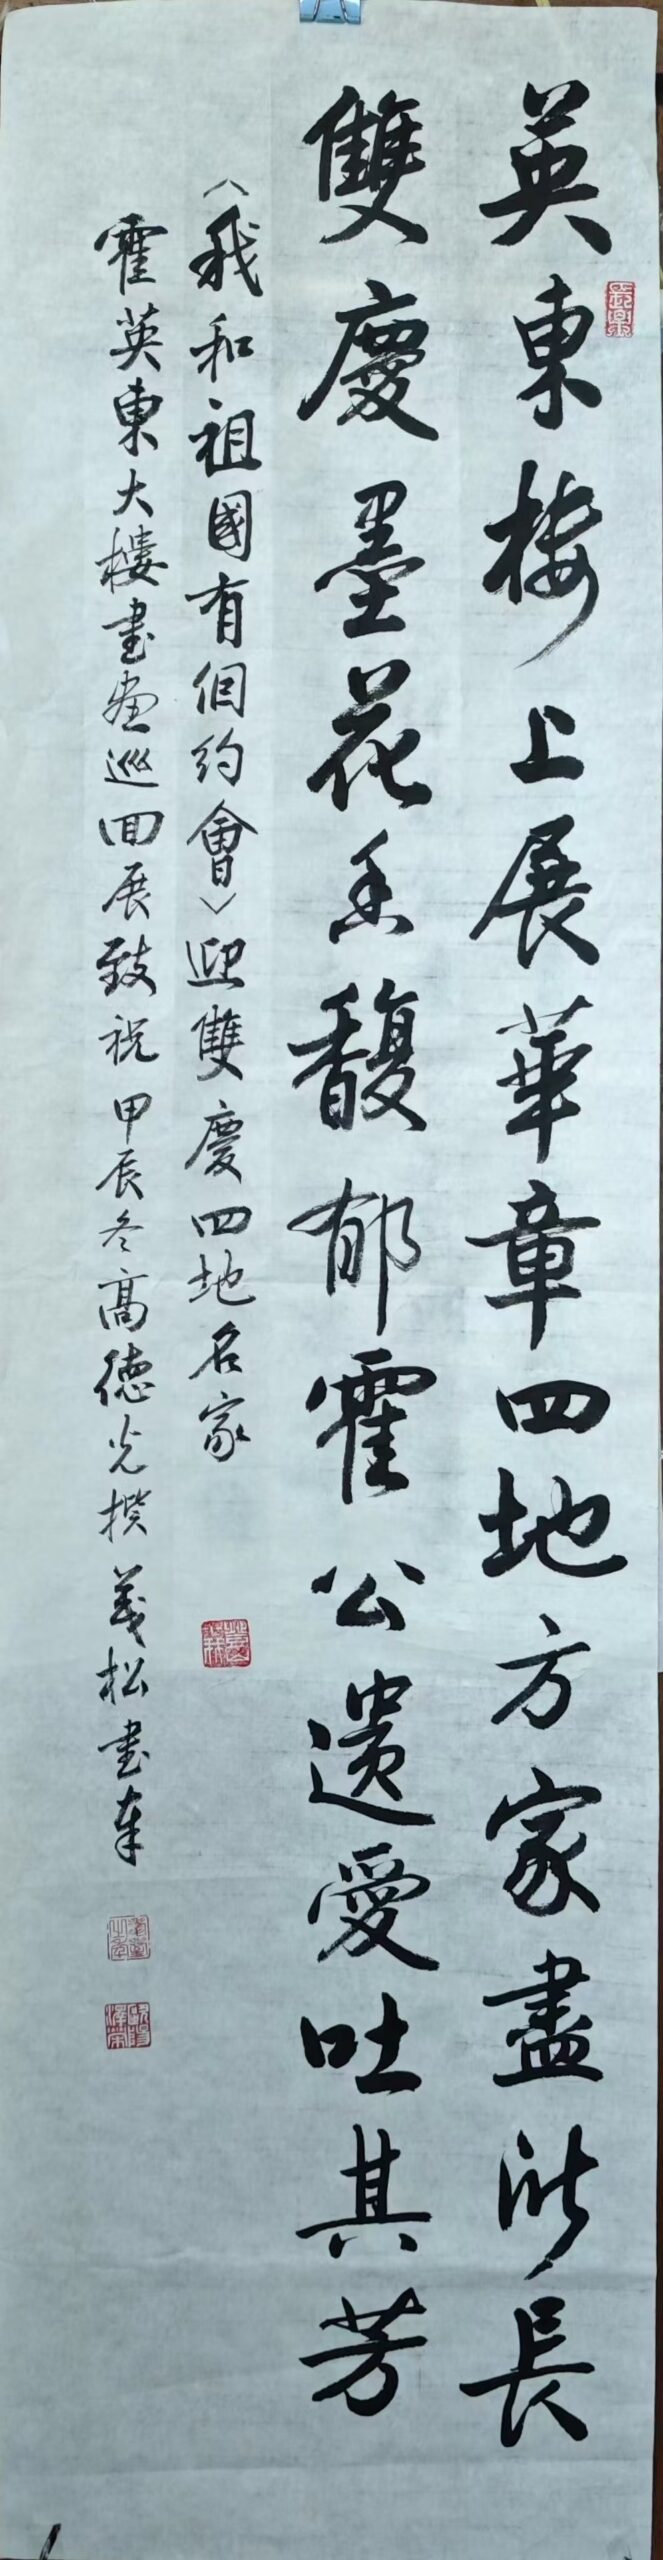 英東楼上展華章四地方家盡所長
雙慶墨花香馥郁霍公遗愛吐其芳
《我和祖國有個約會》迎雙慶四地名家
霍英東大樓書畫巡回展致祝甲辰冬高德光撰義松書奉